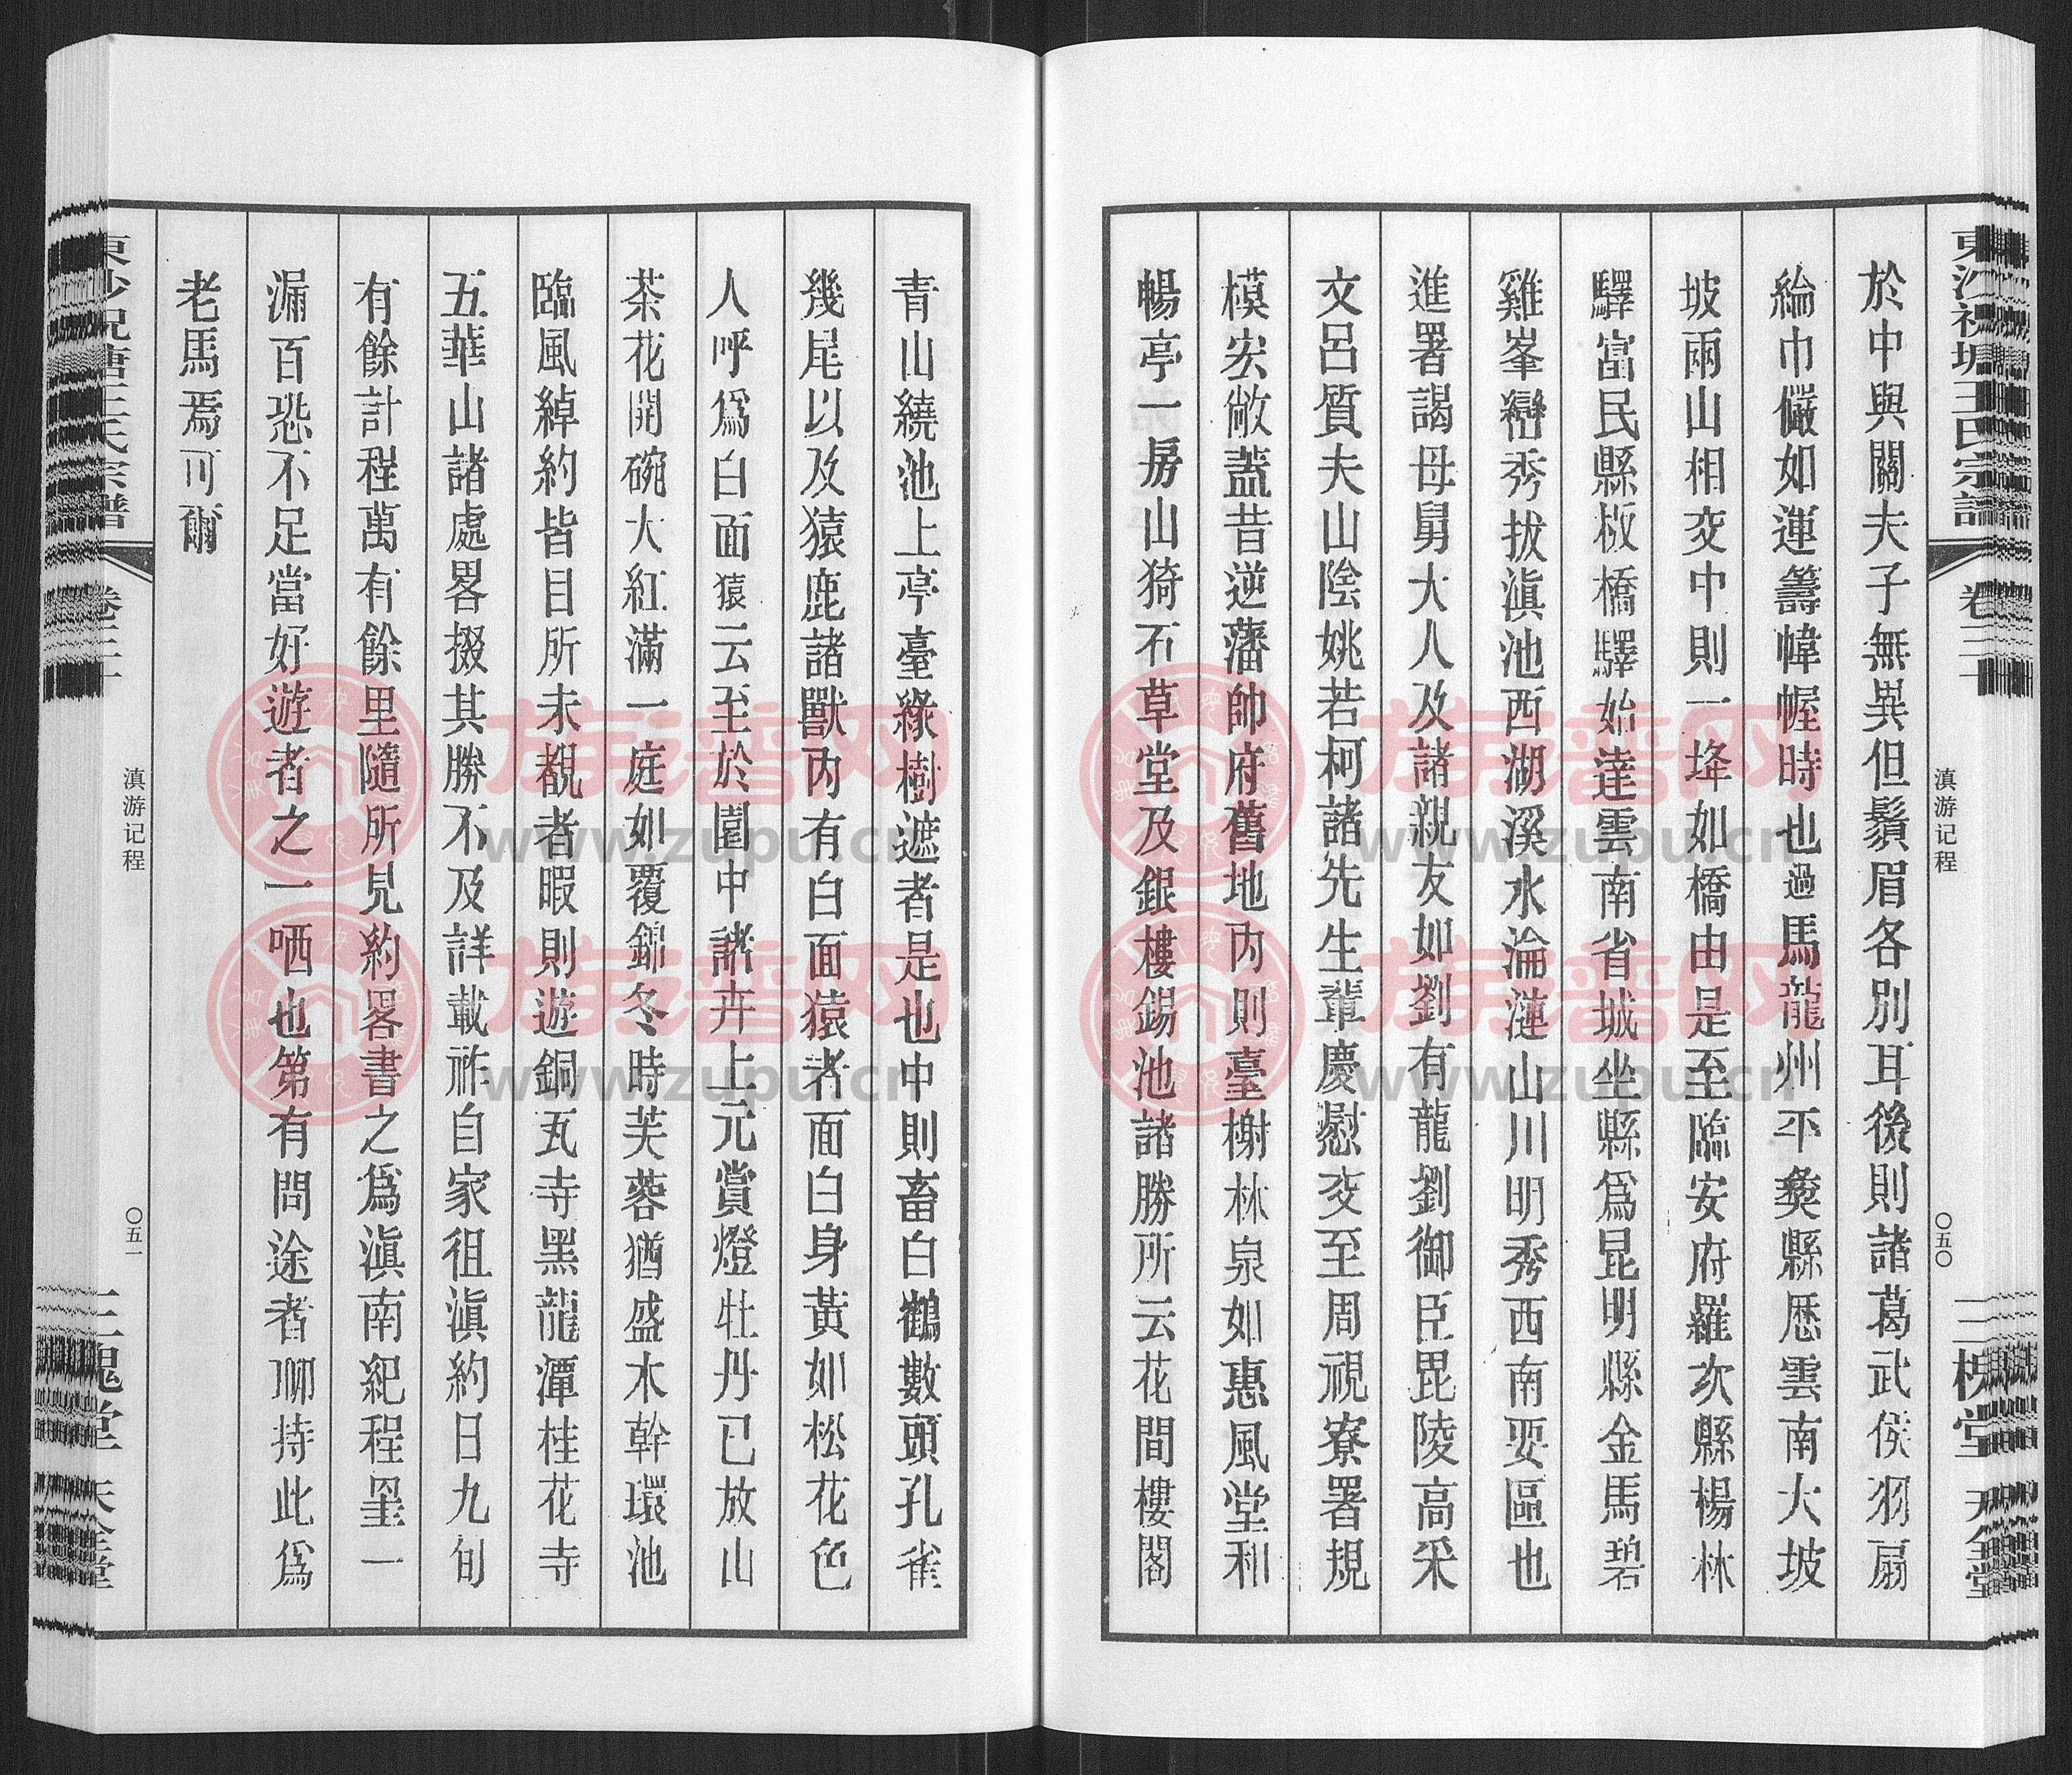 東沙祝塘王氏宗譜
卷三十
滇游记程
〇五〇
三槐堂
於中與關夫子無異但鬚眉各別耳後則諸葛武侯羽扇
綸巾儼如運籌幃幄時也過馬龍州平彜縣歷雲南大坡
坡兩山相交中則一埄如橋由是至臨安府羅次縣楊林
驛富民縣板橋驛始達雲南省城坐縣爲昆明縣金馬碧
雞峯巒秀拔滇池西湖溪水淪漣山川明秀西南要區也
進署謁母舅大人及諸親友如劉有龍劉御臣毘陵高采
文呂質夫山陰姚若柯諸先生輩慶慰交至周視寮署規
模宏敞蓋昔逆藩帥府舊地內則臺榭林泉如惠風堂和
暢亭一房山猗石草堂及銀樓錫池諸勝所云花間樓閣
青山繞池上亭臺綠樹遮者是也中則畜白鶴數頭孔雀
幾尾以及猿鹿諸獸內有白面猿者面白身黃如松花色
人呼爲白面猿云至於園中諸卉上元賞燈牡丹已放山
茶花開碗大紅滿一庭如覆錦冬時芙蓉猶盛木幹環池
臨風綽約皆目所未覩者暇則遊銅瓦寺黑龍潭桂花寺
五華山諸處畧掇其勝不及詳載祚自家徂滇約日九旬
有餘計程萬有餘里隨所見約畧書之爲滇南紀程罣一
漏百恐不足當好遊者之一哂也第有問途者聊持此爲
老馬焉可爾
滇游记程
〇五一